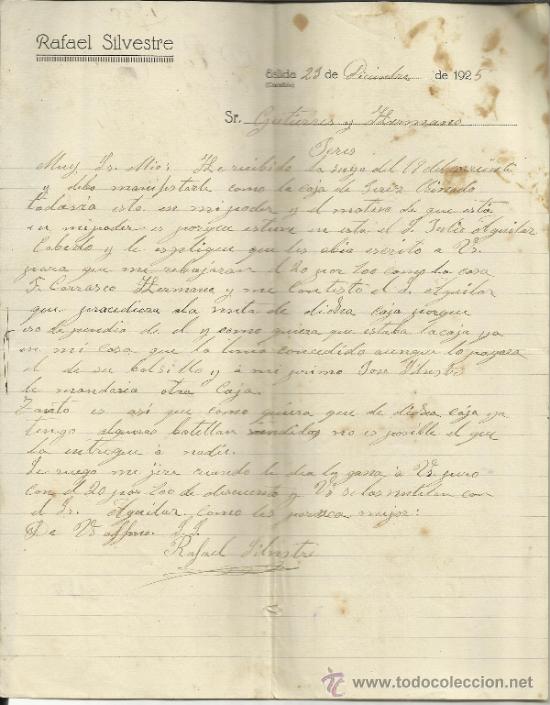 Rafael Silvestre
Salida 23 de Diciembre de 1925
(Castellón)
Sr. Gutierres y Hermano
Jeres
Muy Sr. Mio: He recibido la suya del 19 del
y debo manifestarle como la caja de Jeréz Quinado
todavia esta en mi poder y el motivo de que esta
en mi poder es porque estuvo en esta el S. Julio Aguilar
Cabedo y le esplique que les abia escrito a Vs
para que me rebajaran el 20 por 100 como la casa
F. Carrasco Hermano y me contestó el S. Aguilar
que procediera a la de dicha caja porque
eso dependia de el y como quiera que estaba la caja ya
en mi casa que la tenia concedido aunque lo pagara
el de su bolsillo y a mi primo Jose
le mandaria otra Caja.
Tanto es asi que como quiera que de dicha caja ya
tengo algunas botellas vendidas no es posible el que
la intregue a nadie.
Le ruego me jire cuando le dea la gana á Vs pero
con el 20 por 100 de descuento y Vs se las con
el Sr. Aguilar como les paresca mejor:
De Vs affmo. S.S.
Rafael Silvestre
todocoleccion
www.todocoleccion.net